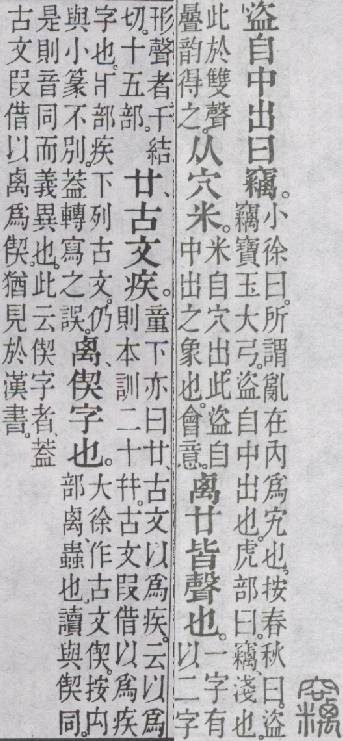 盜自中出曰竊。小徐曰。所謂亂在內爲宄也。按春秋曰。盜竊寶玉大弓。盜自中出也。虎部曰。竊、淺也。
此於雙聲疊韵得之。从穴米。米自穴出。此盜自中出之象也。會意。禼廿皆聲也。一字有以二字
形聲者。千結切。十五部。廿、古文疾。童下亦曰廿、古文以爲疾。云以爲則本訓二十幷。古文叚借以爲疾
字也。疒部疾下列古文。仍與小篆不別。葢轉寫之誤。禼、偰字也。大徐作古文偰。按禸部禼、蟲也。讀與偰同。
是則音同而義異也。此云偰字者、葢古文叚借以禼爲偰。猶見於漢書。